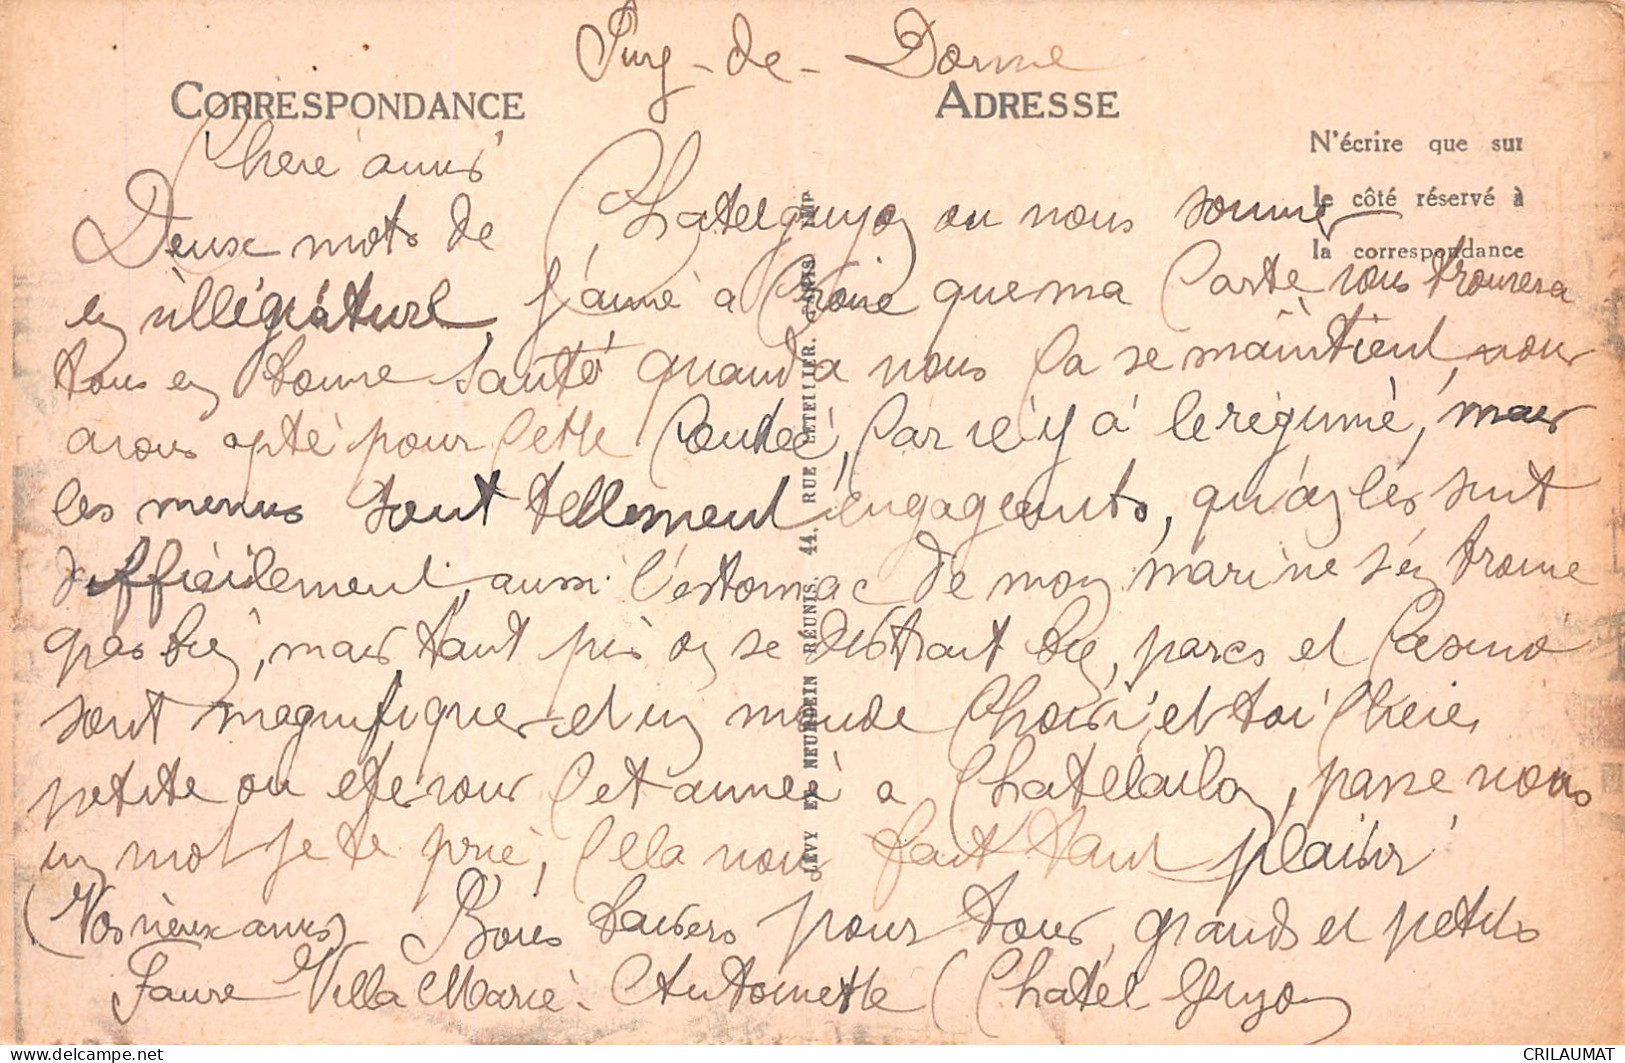 Puy-de-Dome
CORRESPONDANCE
ADRESSE
N'écrire que sur
le côté réservé à
la correspondance
Chere amis
Deux mots de Chatelguyon ou nous somme
en villégiature, j'aime a Croire que ma Carte vous trouvera
tous en bonne Santé quand a nous Ca se maintient, nous
avons opté pour Cette Contrée, Car il y a le régime, mais
les menus sont tellement engageants, qu'on les suit
difficilement, aussi l'estomac de mon mari ne s'en trouve
pas bien, mais tant pis on se distrait bien, parcs et Casino
sont magnifique et un monde Choisi, et toi Chere
petite ou ete vous Cet année a Chatelaillon, passe nous
un mot je te prie, Cela nous fait tant plaisir
(Vos vieux amis) Bons baisers pour tous, grands et petits
Faure Villa Marie. Antoinette (Chatel Guyon
LÉVY ET NEURDEIN RÉUNIS, 44, RUE LETELLIER, PARIS IMP
CRILAUMAT